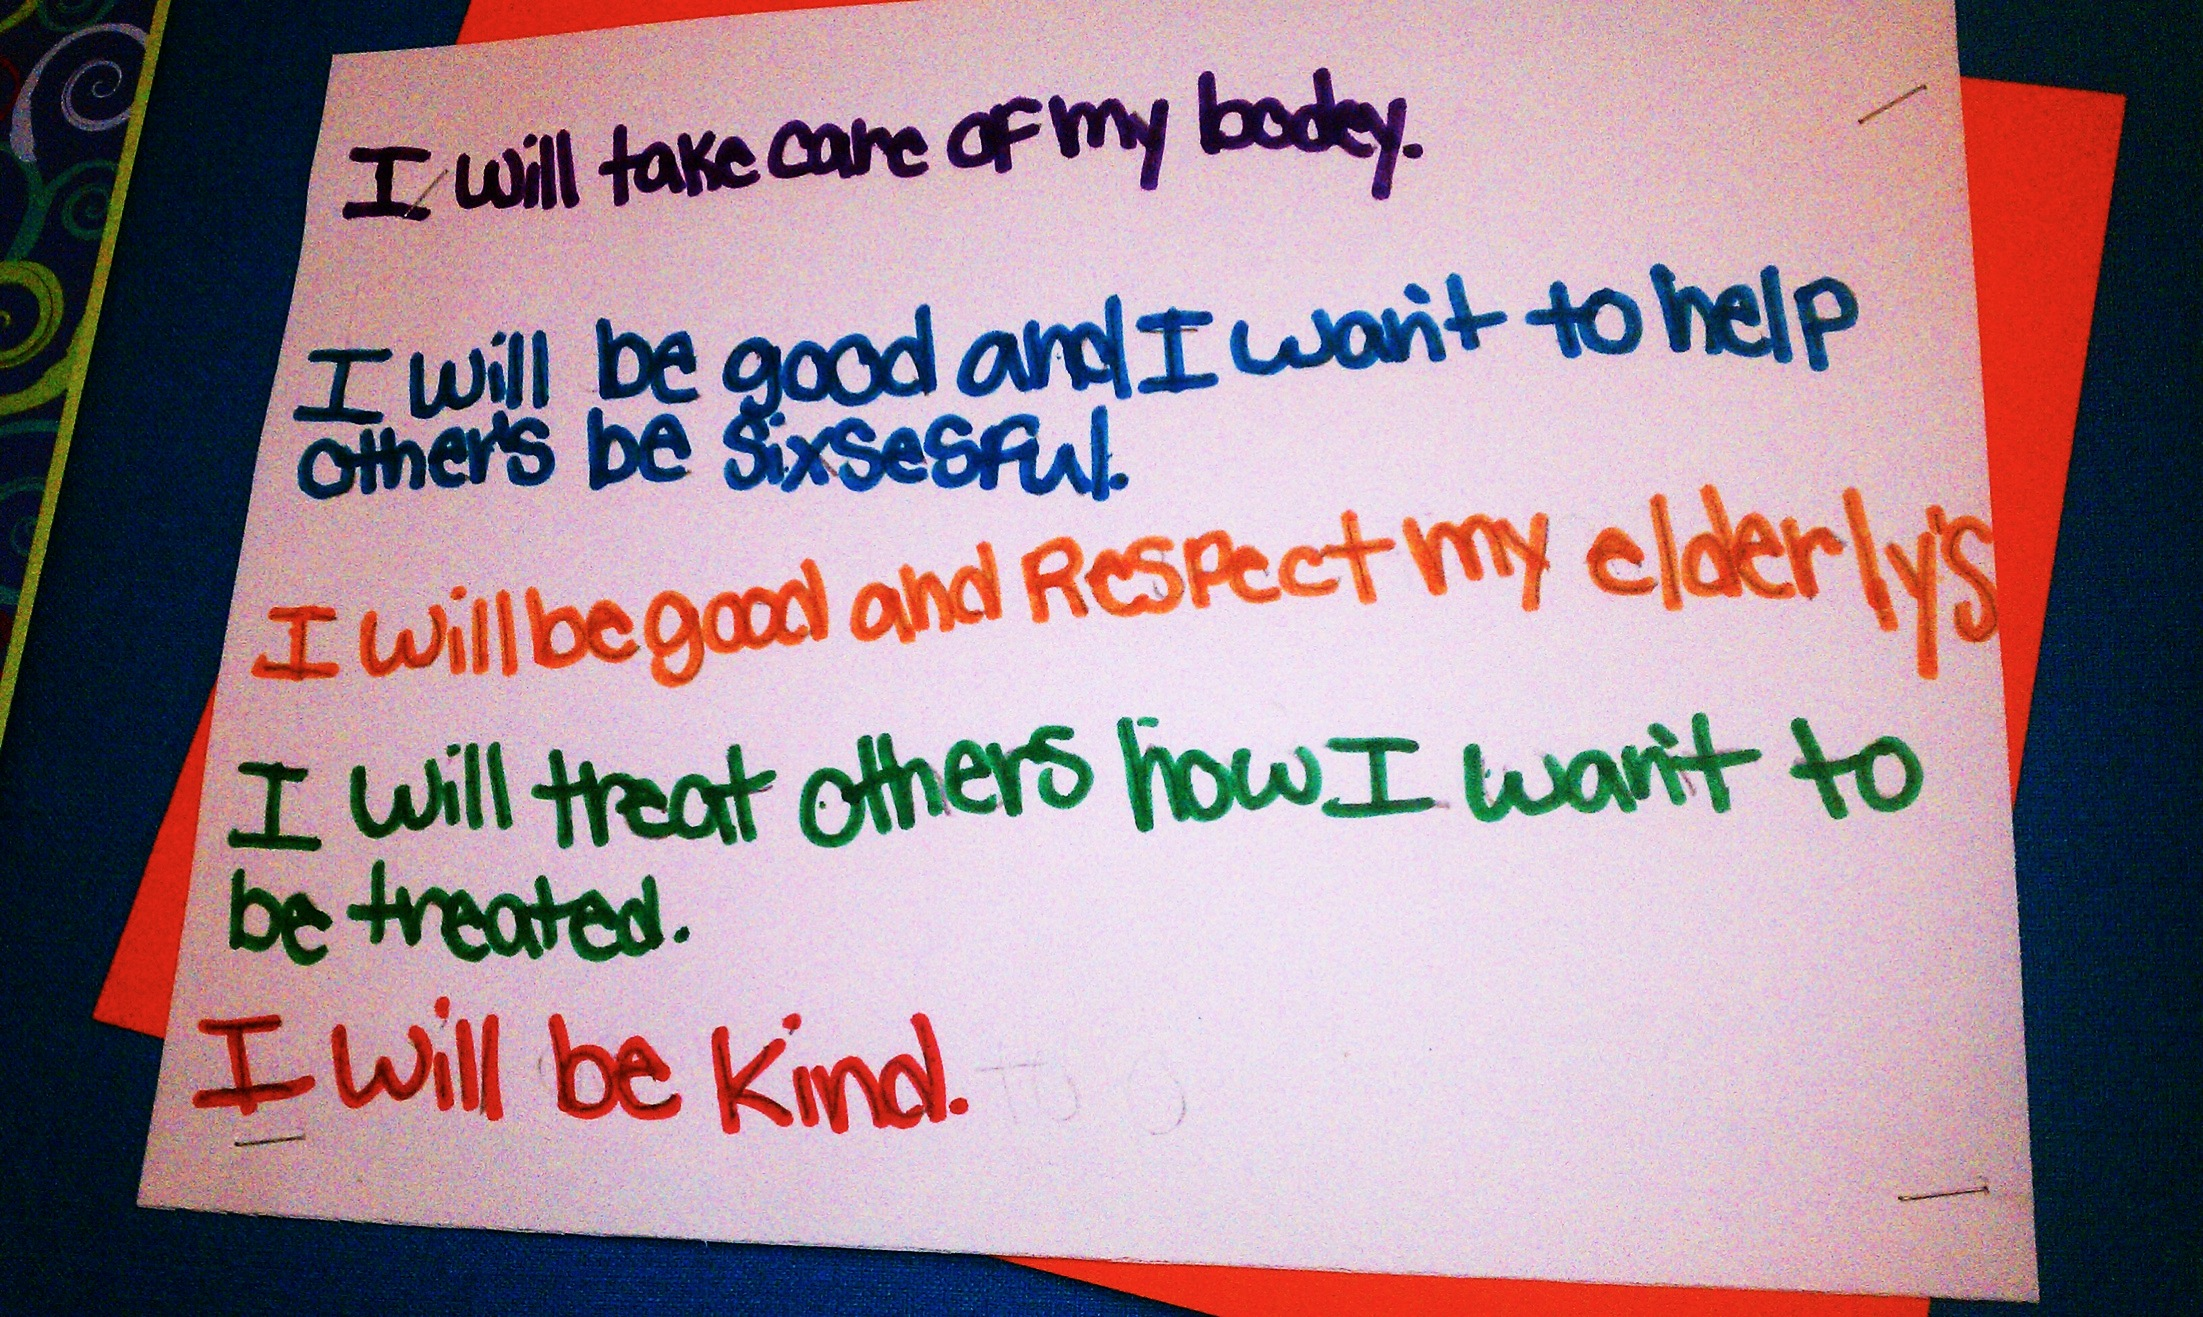 I will take care of my bodey.
I will be good and I wan't to help
other's be sixsesful.
I will be good and Respect my elderly's
I will treat others how I wan't to
be treated.
I will be kind.